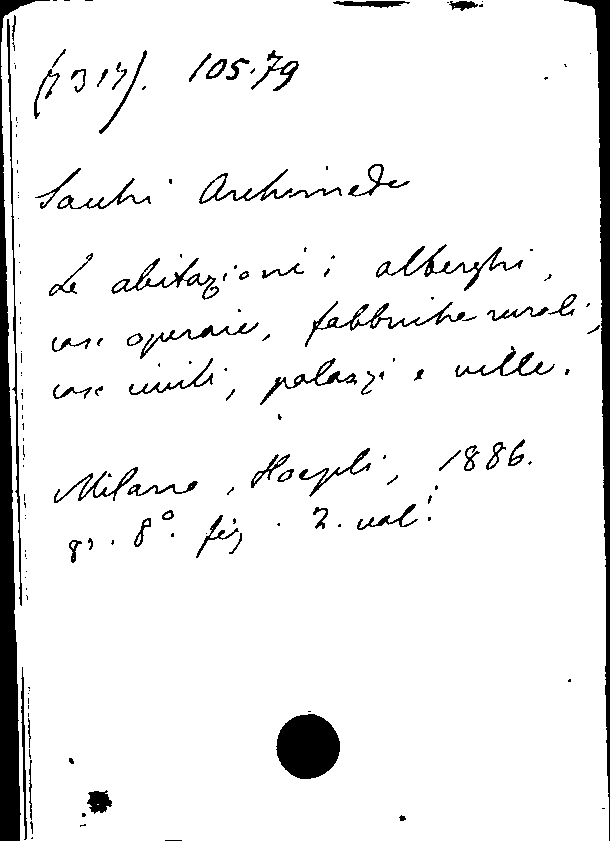 (7317). 105.79
Sacchi Archimede
Le abitazioni; alberghi,
case operaie, fabbriche rurali,
case civili, palazzi e ville.
Milano, Hoepli, 1886.
8°. fig. 2. vol!